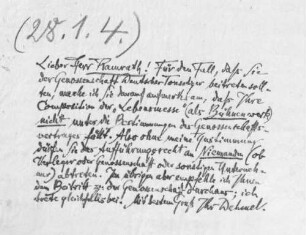 (28.1.4.)
Lieber Herr Kamrath! Für den Fall, daß Sie
der Genossenschaft Deutscher Tonsetzer beitreten soll-
ten, mache ich Sie darauf aufmerksam, daß Ihre
Composition der „Lebensmesse" (als Bühnenwerk)
nicht unter die Bestimmungen des Genossenschafts-
vertrages fällt. Also ohne meine Zustimmung
dürfen Sie das Aufführungsrecht an Niemanden (ob
Verleger oder Genossenschaft oder sonstigen Unterneh-
mer) abtreten. Im übrigen aber empfehle ich Ihnen
den Beitritt zu der Genossenschaft durchaus; ich
trete gleichfalls bei. Mit bestem Gruß Ihr Dehmel.